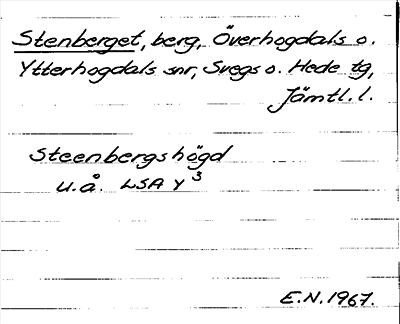 Stenberget, berg, Överhogdals o.
Ytterhogdals snr, Svegs o. Hede tg,
Jämtl. l.
Steenbergshögd
u.å. LSA Y³
E.N. 1967.